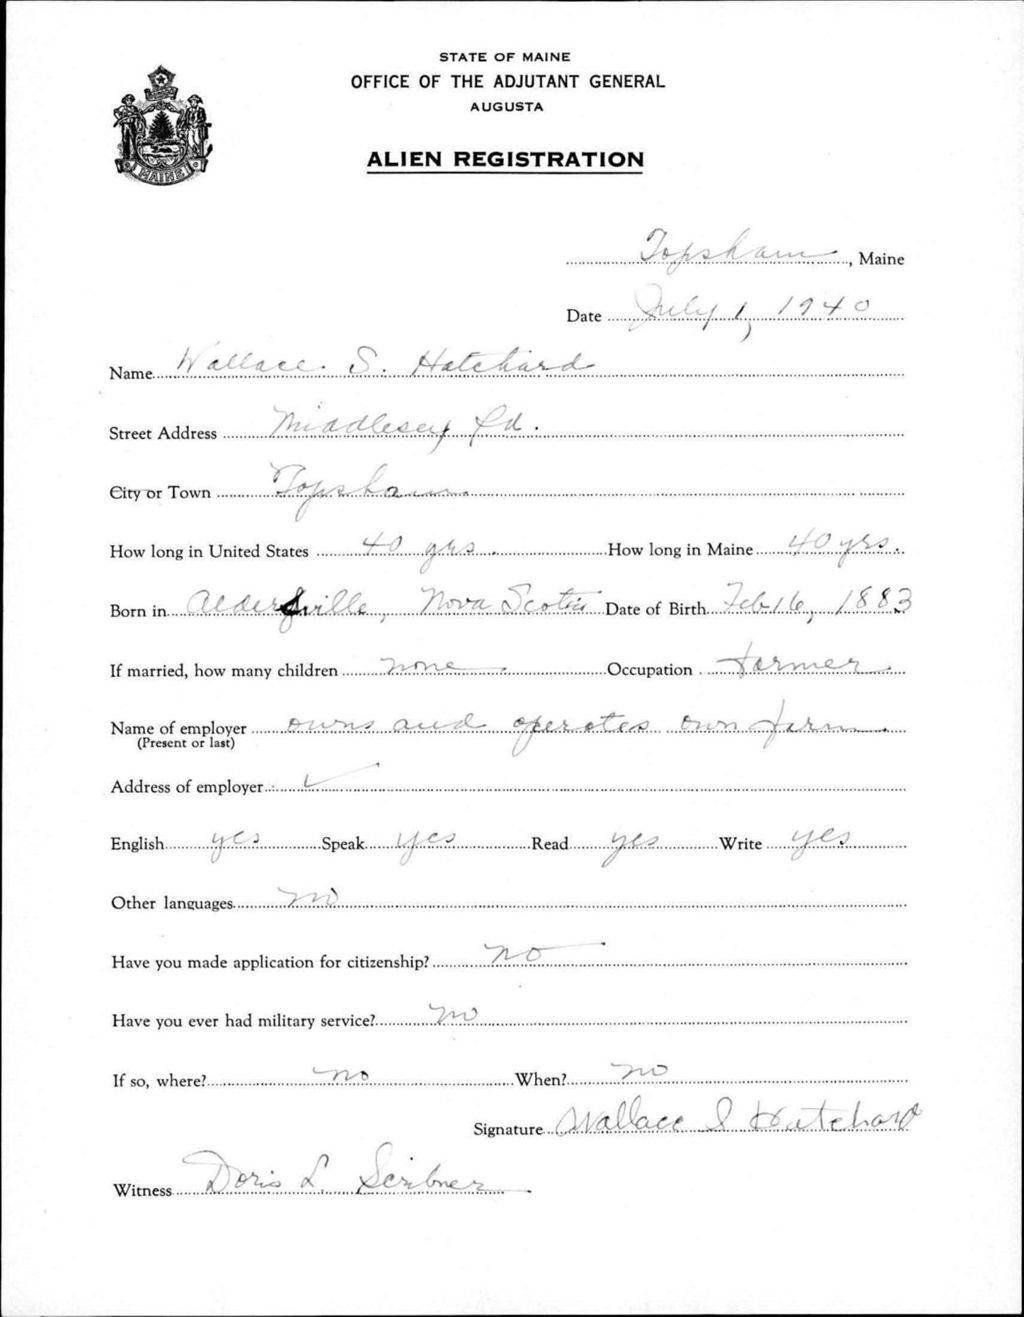 STATE OF MAINE
OFFICE OF THE ADJUTANT GENERAL
AUGUSTA
ALIEN REGISTRATION
MAINE
Topsham, Maine
Date July 1, 1940
Name Wallace S. Hatchard
Street Address Middlesex Rd.
City or Town Topsham
How long in United States 40 yrs. How long in Maine 40 yrs.
Born in Aldersville, Nova Scotia Date of Birth Feb 16, 1883
If married, how many children none. Occupation farmer.
Name of employer owns and operates own farm.
(Present or last)
Address of employer ✓
English yes Speak yes Read yes Write yes
Other languages no
Have you made application for citizenship? no
Have you ever had military service? no
If so, where? no When? no
Signature Wallace S Hatchard
Witness Doris L. Scribner